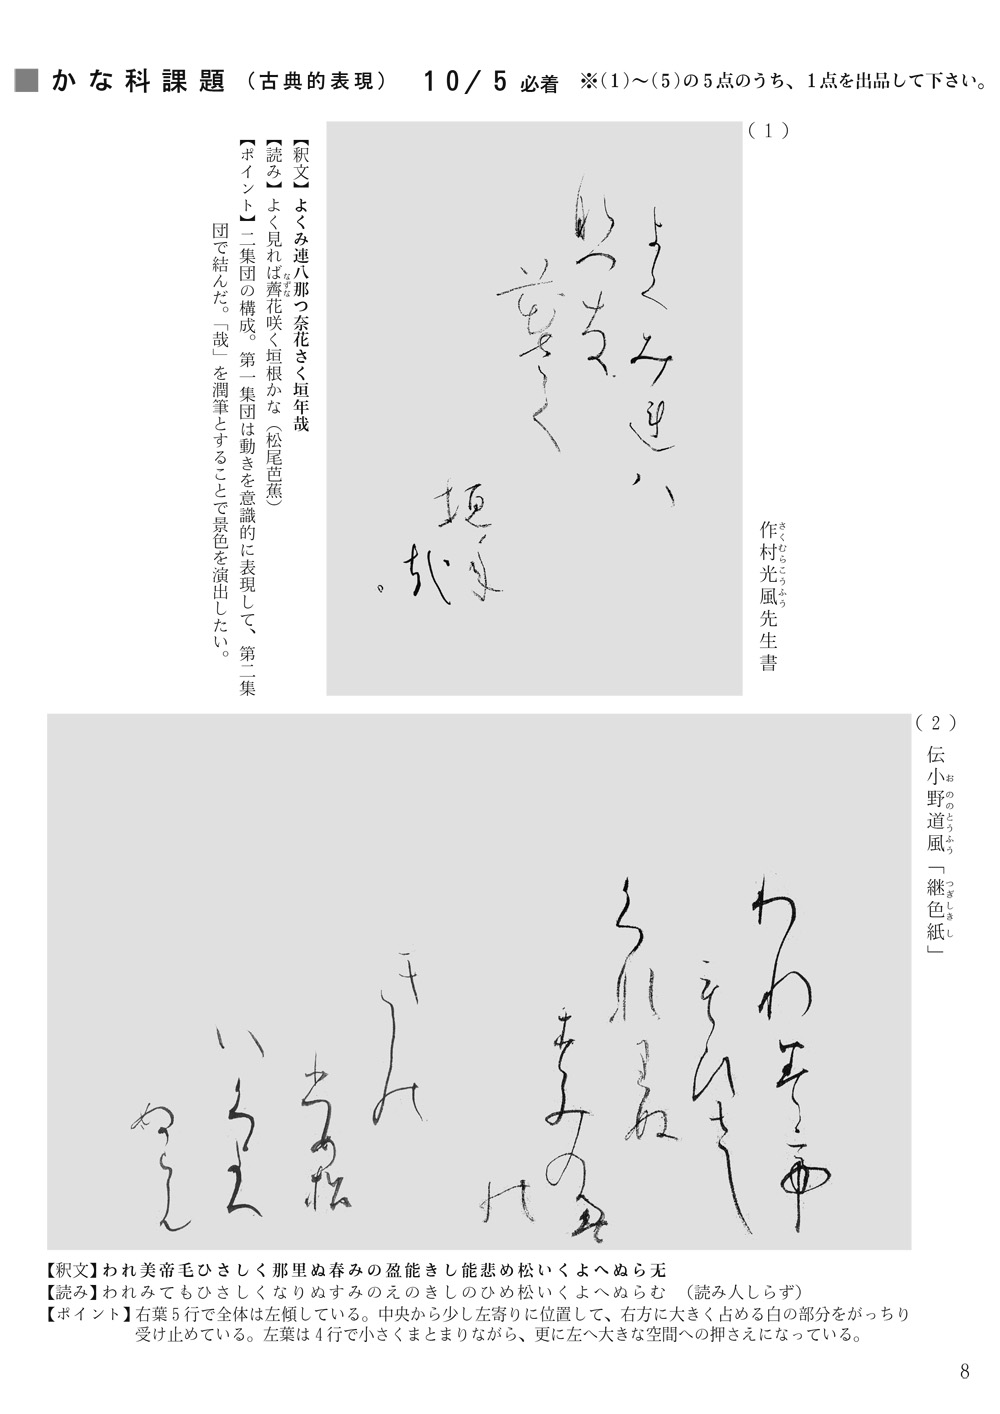 ■かな科課題（古典的表現） 10/5必着 ※(1)～(5)の5点のうち、1点を出品して下さい。
(1)
作村光風先生書
さくむらこうふう
よくみ連八
那つ奈
花さく
垣年
哉
【釈文】よくみ連八那つ奈花さく垣年哉
【読み】よく見れば薺花咲く垣根かな（松尾芭蕉）
なずな
【ポイント】二集団の構成。第一集団は動きを意識的に表現して、第二集
団で結んだ。「哉」を潤筆とすることで景色を演出したい。
(2)
伝小野道風「継色紙」
おののとうふう つぎしきし
われ美帝
毛ひさし
く那里ぬ
春みの盈
能
きし能
悲め松
いくよへ
ぬら无
【釈文】われ美帝毛ひさしく那里ぬ春みの盈能きし能悲め松いくよへぬら无
【読み】われみてもひさしくなりぬすみのえのきしのひめ松いくよへぬらむ （読み人しらず）
【ポイント】右葉5行で全体は左傾している。中央から少し左寄りに位置して、右方に大きく占める白の部分をがっちり
受け止めている。左葉は4行で小さくまとまりながら、更に左へ大きな空間への押さえになっている。
8